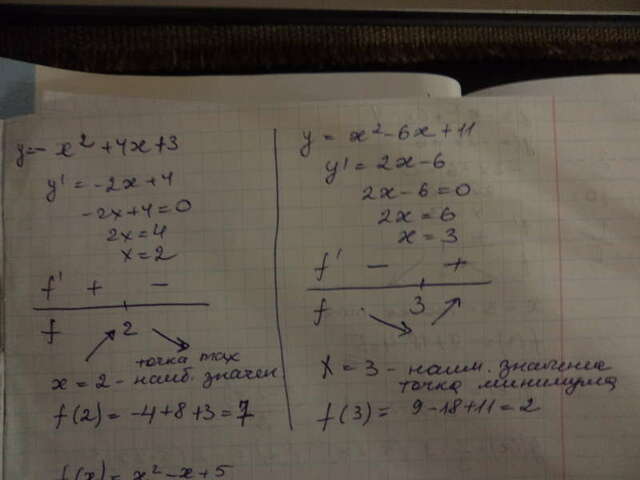 y=-x²+4x+3
y' = -2x+4
-2x+4=0
2x=4
x=2
f' + −
f 2
точка max
x=2 - наиб. значен
f(2) = -4+8+3=7
f(x) = x²-x+5
y = x²-6x+11
y' = 2x-6
2x-6=0
2x=6
x=3
f' − +
f 3
x = 3 - наим. значение
точка минимума
f(3) = 9-18+11=2